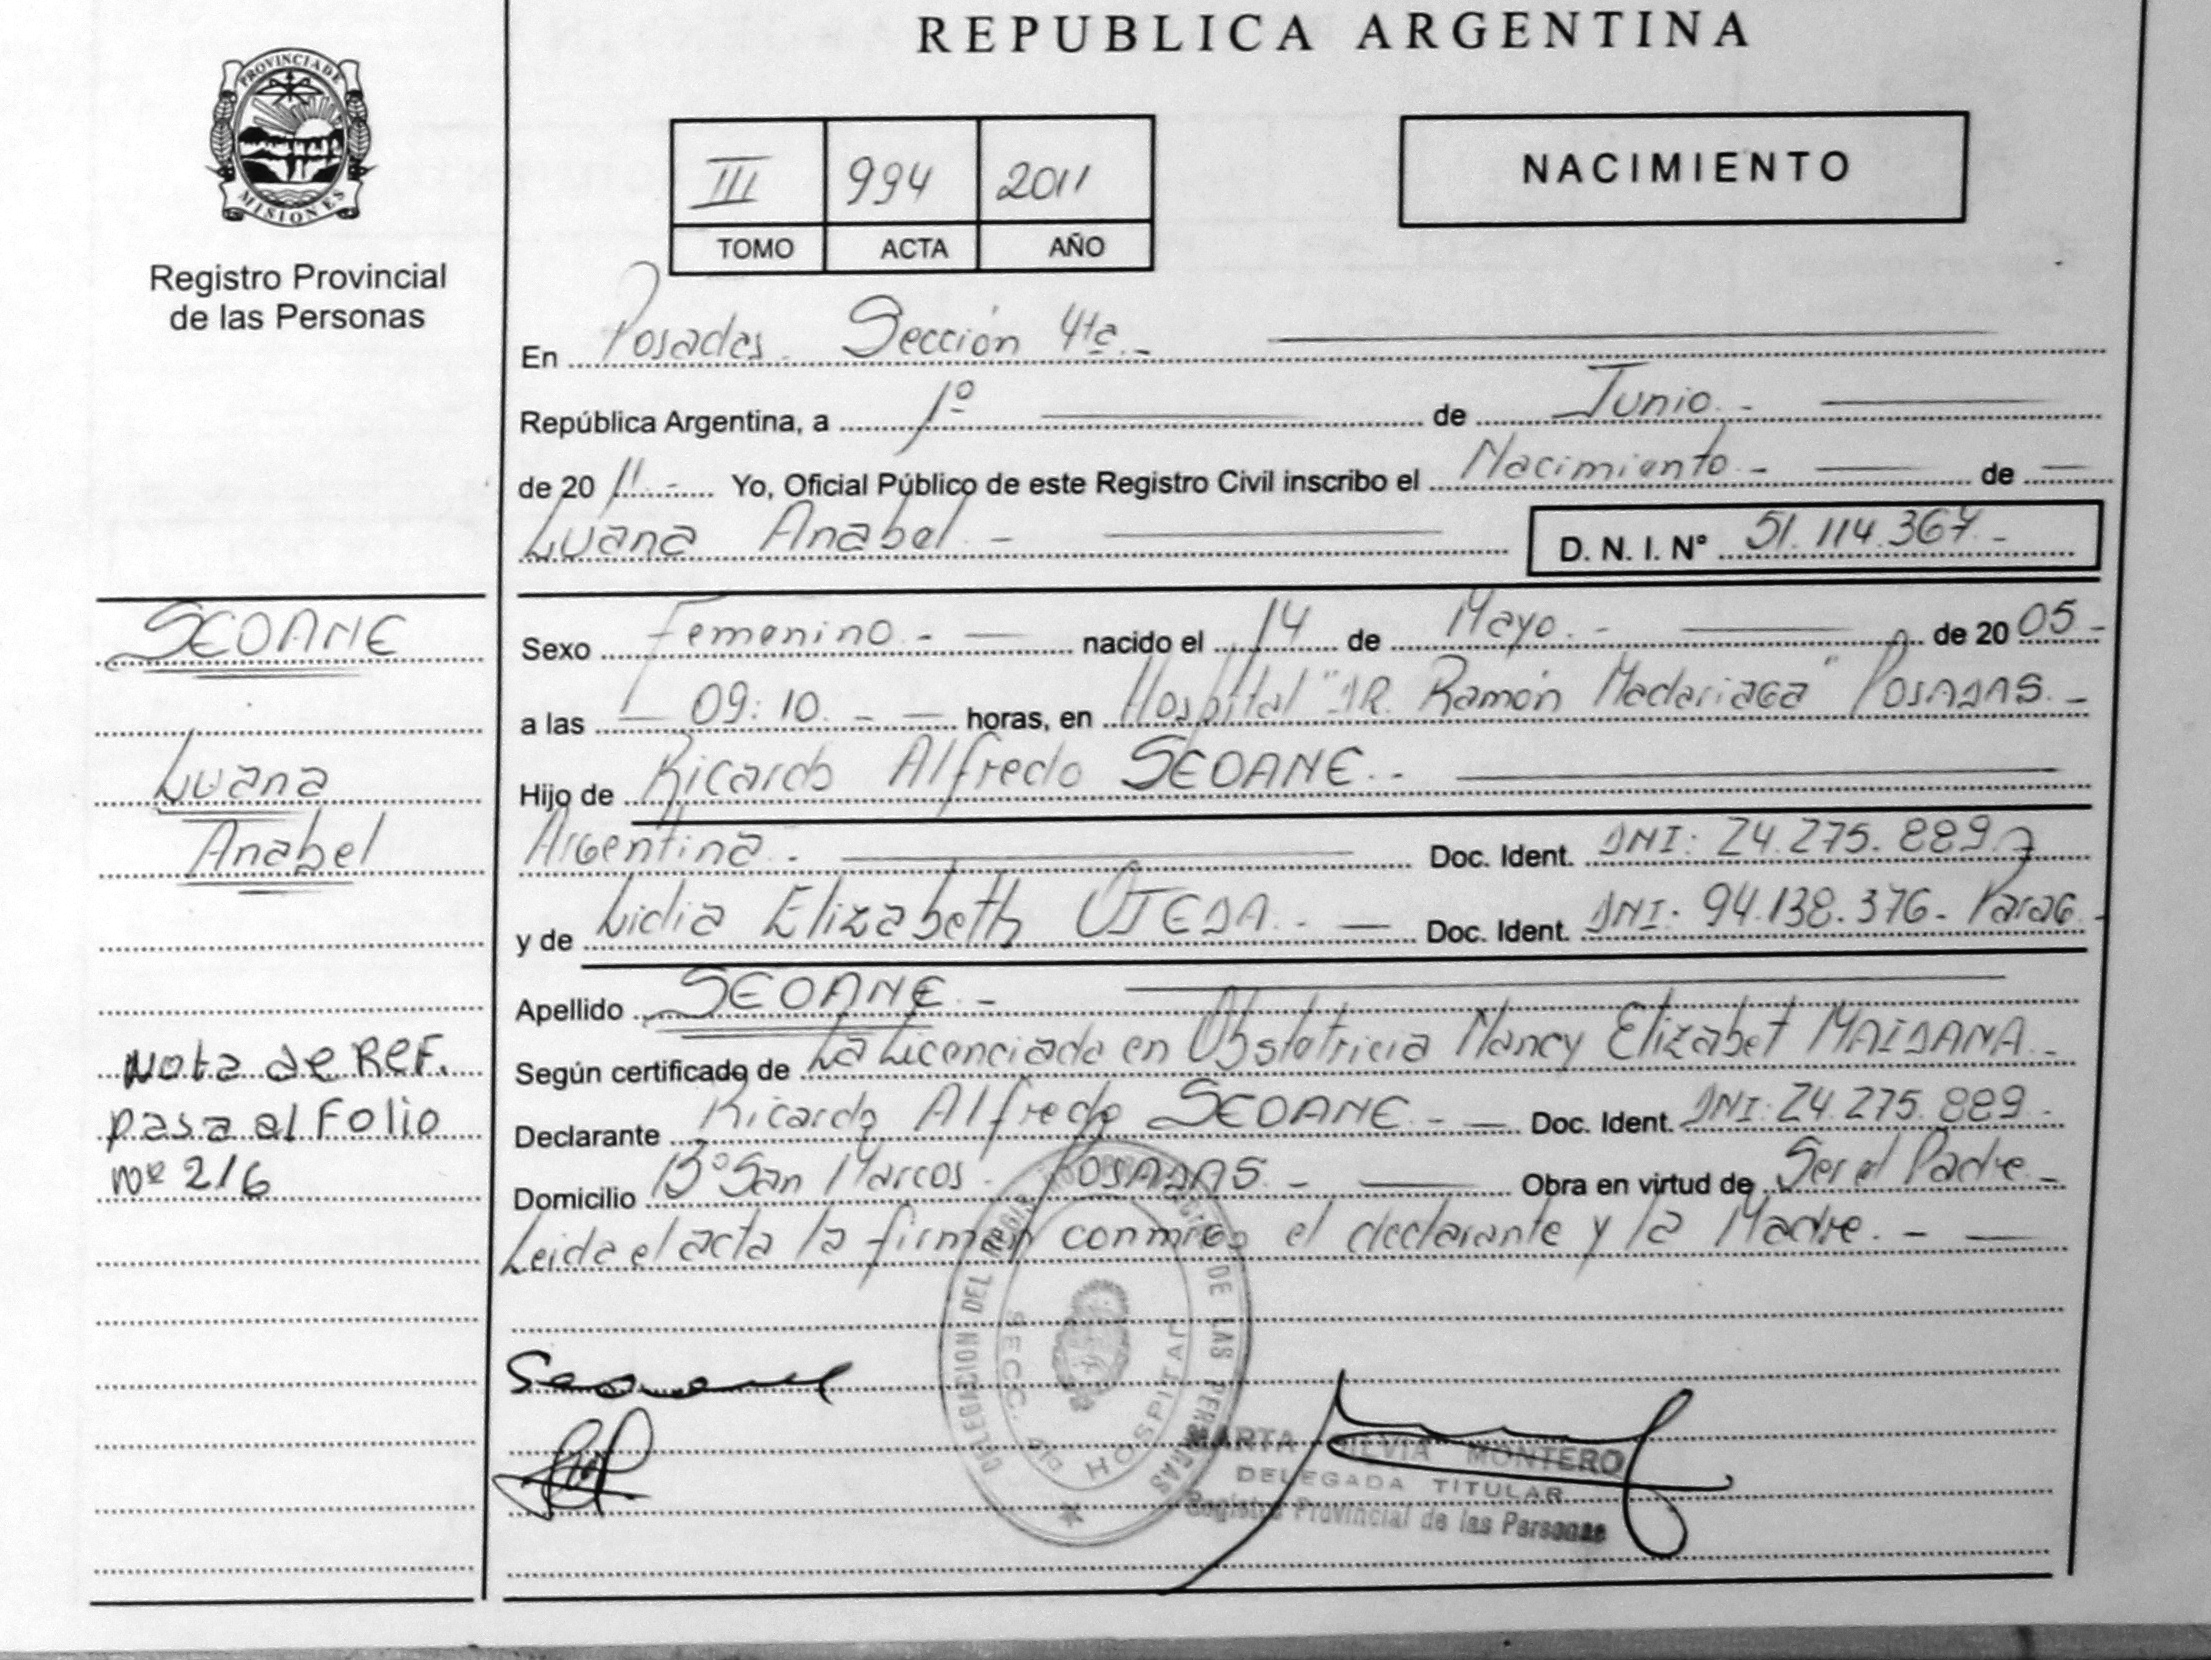 REPUBLICA ARGENTINA
PROVINCIA DE
MISIONES
Registro Provincial
de las Personas
III 994 2011
TOMO ACTA AÑO
NACIMIENTO
En Posadas. Sección 4ta.-
República Argentina, a 1º de Junio.-
de 20 11.- Yo, Oficial Público de este Registro Civil inscribo el Nacimiento.- de
Luana Anabel.- D. N. I. Nº 51.114.367.-
SEOANE
Luana
Anabel
Nota de REF.
pasa al Folio
Nº 216
Sexo Femenino.- nacido el 14 de Mayo.- de 20 05.-
a las 09:10.- horas, en Hospital "DR. Ramón Madariaga" POSADAS.-
Hijo de Ricardo Alfredo SEOANE.-
Argentina.- Doc. Ident. DNI: 24.275.889.
y de Lidia Elizabeth OJEDA.- Doc. Ident. DNI: 94.138.376- Parag.
Apellido SEOANE.-
Según certificado de La Licenciada en Obstetricia Nancy Elizabet MAIDANA.-
Declarante Ricardo Alfredo SEOANE.- Doc. Ident. DNI: 24.275.889.-
Domicilio Bº San Marcos. POSADAS.- Obra en virtud de Ser el Padre.-
Leida el acta la firman conmigo el declarante y la Madre.-
Seoane
DELEGACION DEL DE LAS PERSONAS
SECC. 4ta HOSPITAL
MARTA SILVIA MONTERO
DELEGADA TITULAR
Registro Provincial de las Personas